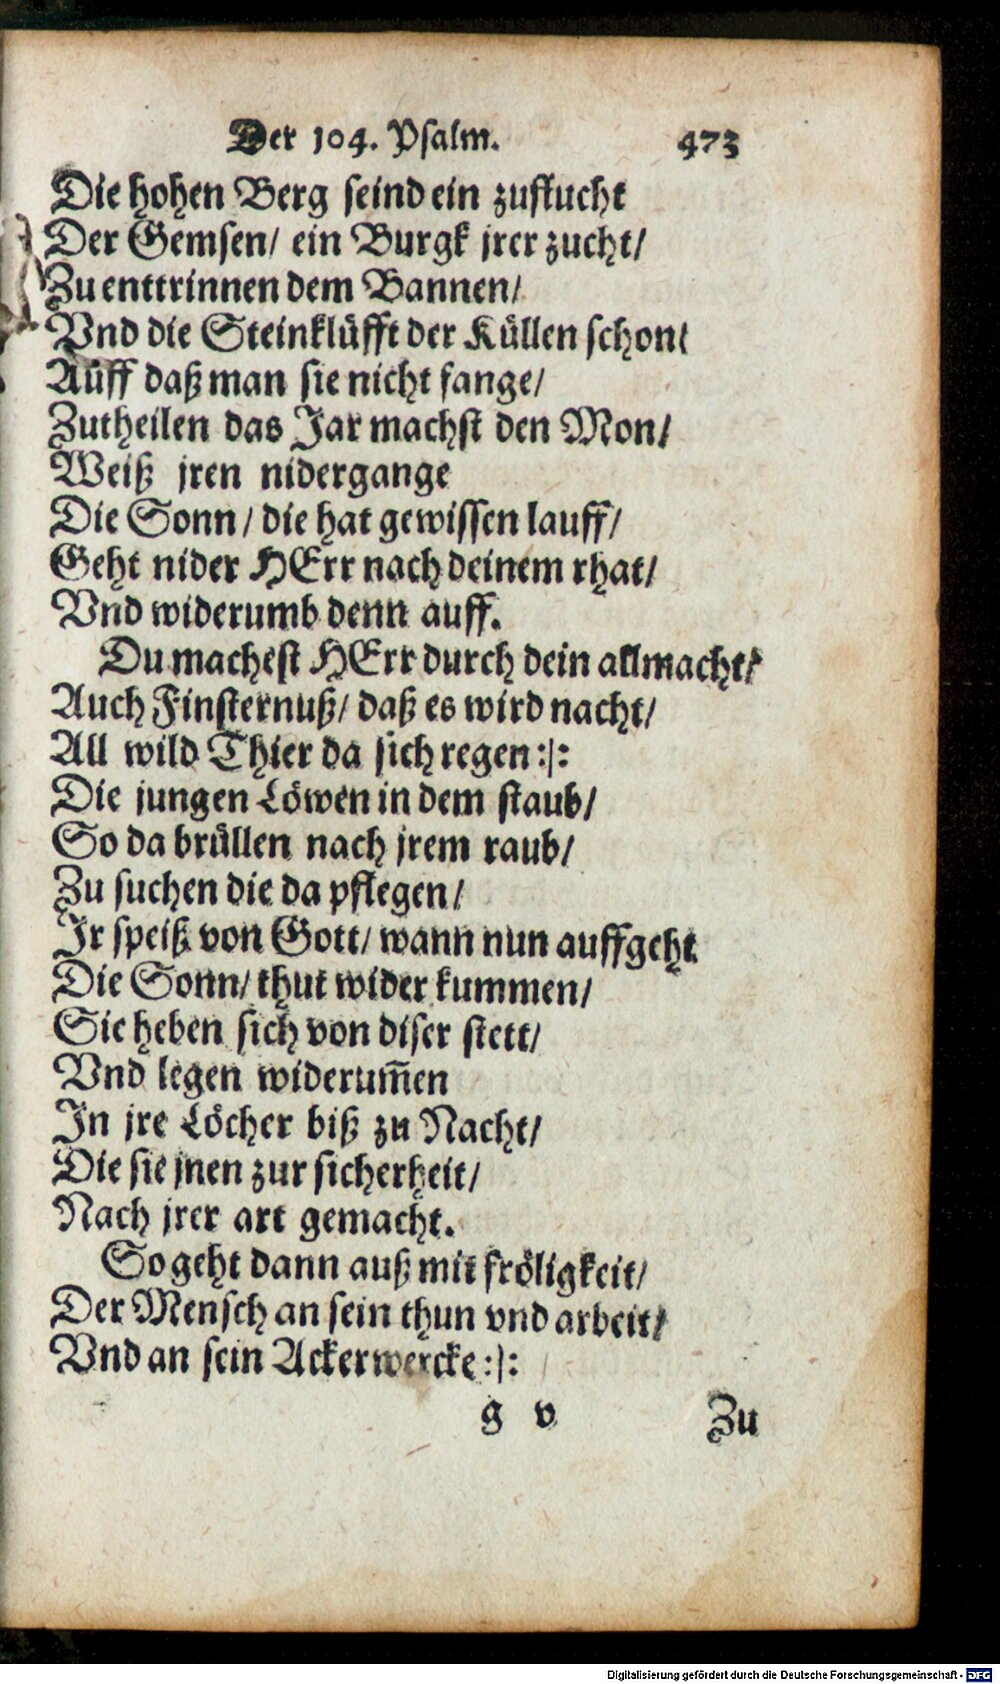 Der 104. Psalm. 473
Die hohen Berg seind ein zuflucht
Der Gemsen/ ein Burgk jrer zucht/
Zu enttrinnen dem Bannen/
Vnd die Steinklüfft der Küllen schon/
Auff daß man sie nicht fange/
Zutheilen das Jar machst den Mon/
Weiß jren nidergange
Die Sonn/ die hat gewissen lauff/
Geht nider HErr nach deinem rhat/
Vnd widerumb denn auff.
Du machest HErr durch dein allmacht/
Auch Finsternuß/ daß es wird nacht/
All wild Thier da sich regen:|:
Die jungen Löwen in dem staub/
So da brüllen nach jrem raub/
Zu suchen die da pflegen/
Jr speiß von Gott/ wann nun auffgeht
Die Sonn/ thut wider kummen/
Sie heben sich von diser stett/
Vnd legen widerum̃en
In jre Löcher biß zu Nacht/
Die sie jnen zur sicherheit/
Nach jrer art gemacht.
So geht dann auß mit fröligkeit/
Der Mensch an sein thun vnd arbeit/
Vnd an sein Ackerwercke:|:
g v Zu
Digitalisierung gefördert durch die Deutsche Forschungsgemeinschaft - DFG